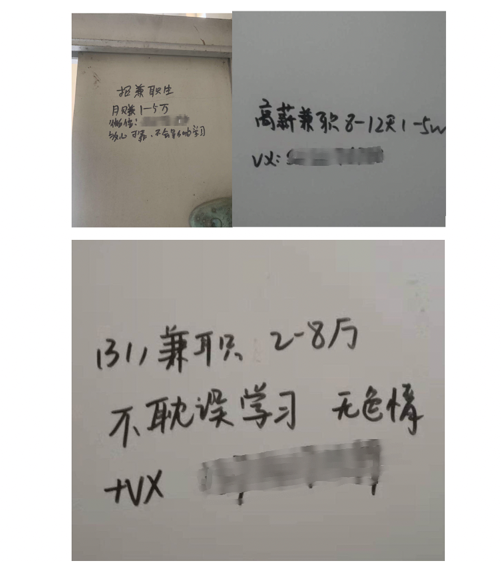 招兼职生
月赚1-5万
微信:
放心 可靠, 不会影响学习
高薪兼职8-12天1-5w
VX:
兼职 2-8万
不耽误学习 无色情
+VX